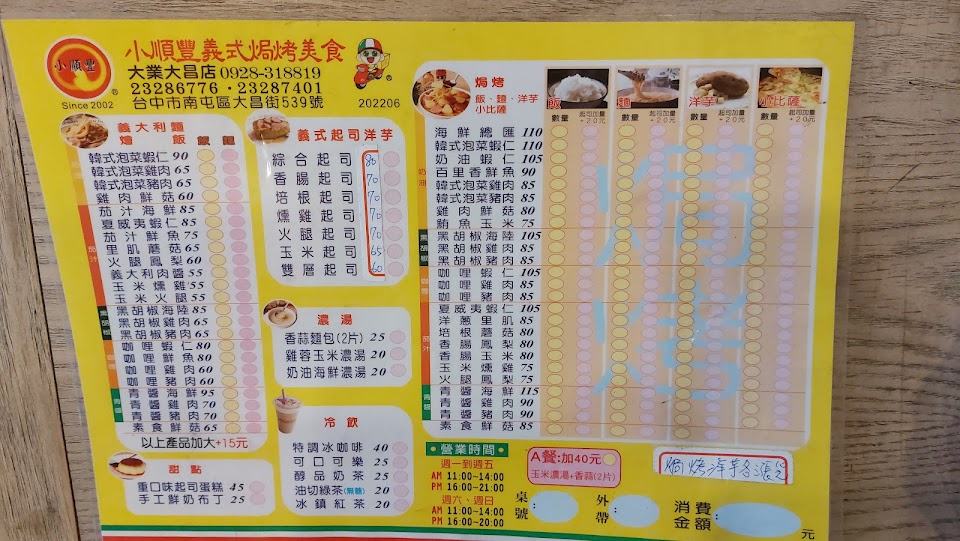 小順豐
®
Since 2002
小順豐義式焗烤美食
大業大昌店 0928-318819
23286776・23287401
台中市南屯區大昌街539號
202206
義大利麵
燴飯 飯 麵
韓式泡菜蝦仁 90
韓式泡菜雞肉 65
韓式泡菜豬肉 65
雞肉鮮菇 60
茄汁
茄汁海鮮 85
夏威夷蝦仁 85
茄汁鮮魚 75
里肌蘑菇 65
火腿鳳梨 60
義大利肉醬 55
玉米燻雞 55
玉米火腿 55
黑胡椒
黑胡椒海陸 85
黑胡椒雞肉 65
黑胡椒豬肉 65
咖哩蝦仁 80
咖哩鮮魚 80
咖哩雞肉 60
咖哩豬肉 60
青醬
青醬海鮮 95
青醬雞肉 70
青醬豬肉 70
素食鮮菇 65
以上產品加大+15元
甜點
重口味起司蛋糕 45
手工鮮奶布丁 25
義式起司洋芋
綜合起司 80
香腸起司 70
培根起司 70
燻雞起司 70
火腿起司 70
玉米起司 65
雙層起司 60
濃湯
香蒜麵包(2片) 25
雞蓉玉米濃湯 20
奶油海鮮濃湯 20
冷飲
特調冰咖啡 40
可口可樂 25
醇品奶茶 25
油切綠茶(無糖) 20
冰鎮紅茶 20
焗烤
飯、麵、洋芋
小比薩
飯 麵 洋芋 小比薩
數量 起司加量+20元 數量 起司加量+20元 數量 起司加量+20元 數量 起司加量+20元
海鮮總匯 110
韓式泡菜蝦仁 110
奶油
奶油蝦仁 105
百里香鮮魚 90
韓式泡菜雞肉 85
韓式泡菜豬肉 85
雞肉鮮菇 80
鮪魚玉米 75
黑胡椒
黑胡椒海陸 105
黑胡椒雞肉 85
黑胡椒豬肉 85
咖哩蝦仁 105
咖哩雞肉 85
咖哩豬肉 85
茄汁
夏威夷蝦仁 105
洋蔥里肌 85
培根蘑菇 80
香腸鳳梨 80
香腸玉米 80
玉米燻雞 75
火腿鳳梨 75
青醬
青醬海鮮 115
青醬雞肉 90
青醬豬肉 90
素食鮮菇 85
焗烤
・營業時間・
週一到週五
AM 11:00~14:00
PM 16:00~21:00
週六、週日
AM 11:00~14:00
PM 16:00~20:00
A餐:加40元
玉米濃湯+香蒜(2片)
焗烤洋芋
桌號 外帶 消費金額 元